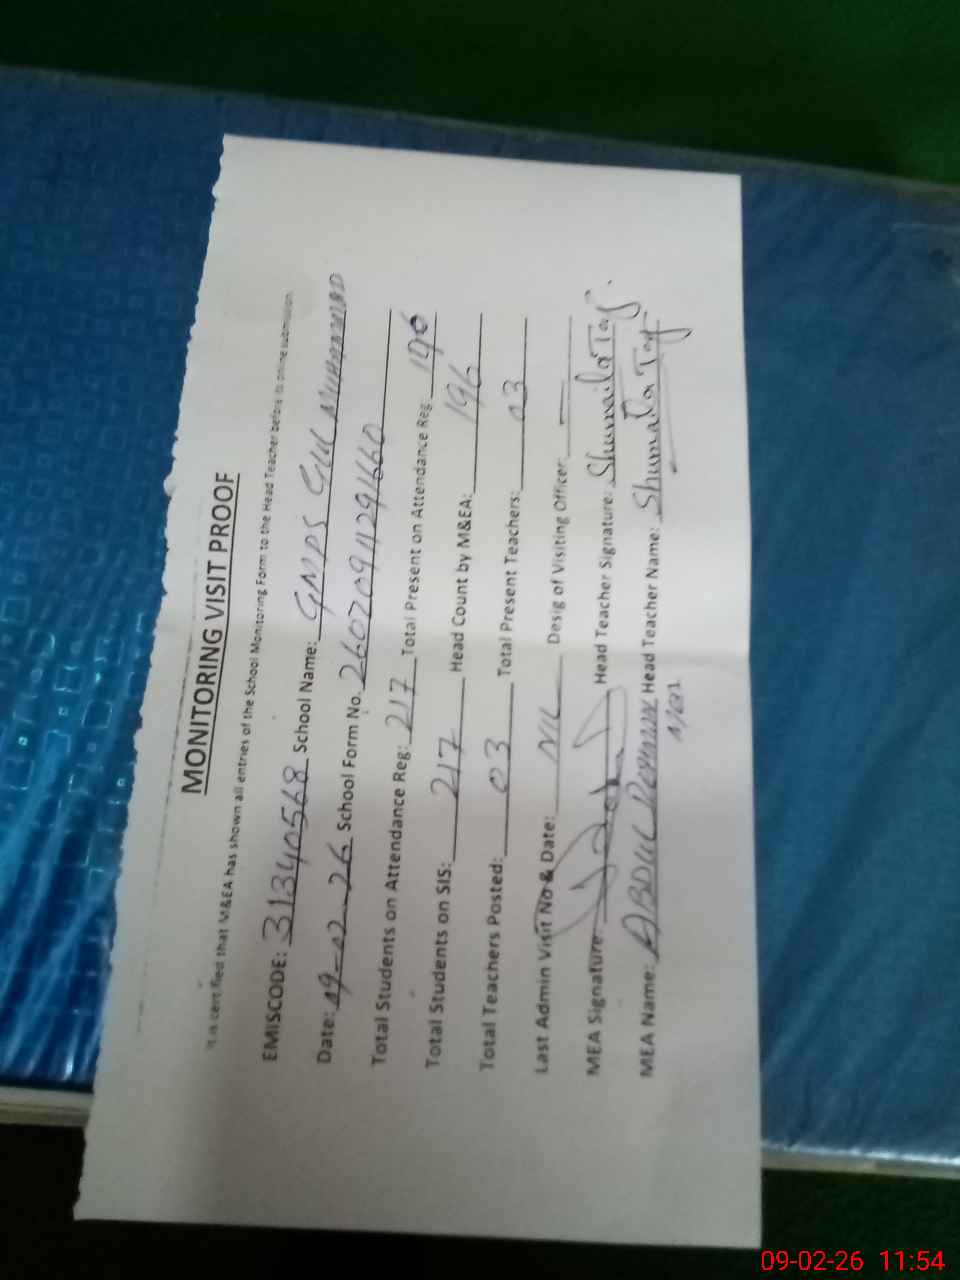 MONITORING VISIT PROOF
It is certified that M&EA has shown all entries of the School Monitoring Form to the Head Teacher before its online submission.
EMISCODE: 31340568 School Name: GMPS GUL MUHAMMAD
Date: 09-02-26 School Form No. 26020911291660
Total Students on Attendance Reg: 217 Total Present on Attendance Reg: 196
Total Students on SIS: 217 Head Count by M&EA: 196
Total Teachers Posted: 03 Total Present Teachers: 03
Last Admin Visit No & Date: NIL Desig of Visiting Officer: —
MEA Signature: Head Teacher Signature: Shumaila Taj.
MEA Name: ABDUL REHMAN Head Teacher Name: Shumaila Taj
09-02-26 11:54